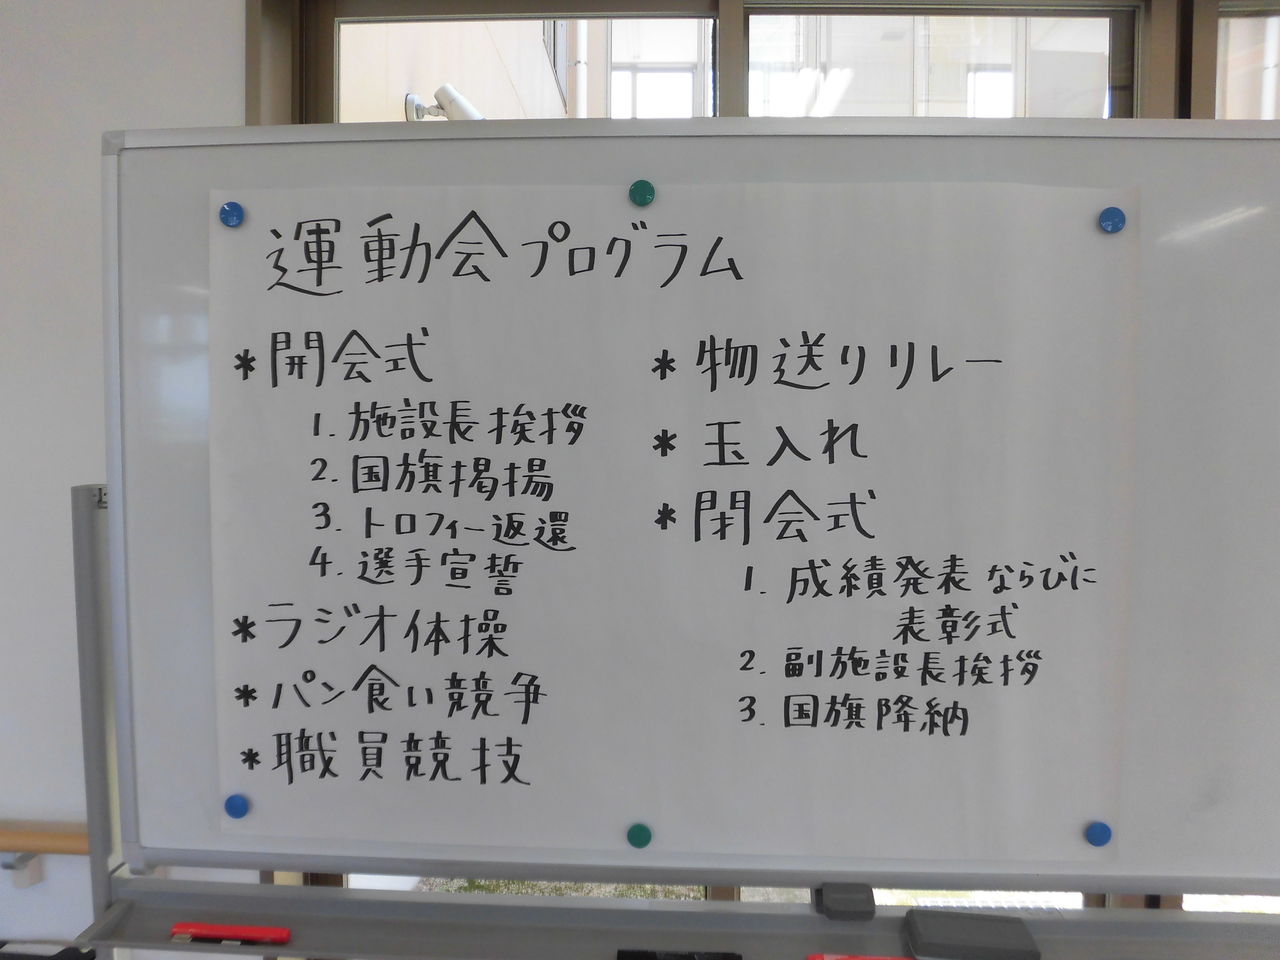 運動会プログラム
* 開会式
1. 施設長挨拶
2. 国旗掲揚
3. トロフィー返還
4. 選手宣誓
* ラジオ体操
* パン食い競争
* 職員競技
* 物送りリレー
* 玉入れ
* 閉会式
1. 成績発表ならびに
表彰式
2. 副施設長挨拶
3. 国旗降納